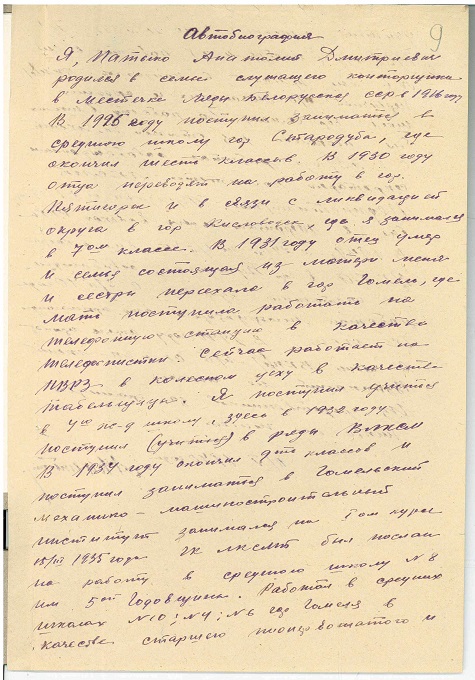 9
Автобиография
Я, Матыко Анатолий Дмитриевич
родился в семье служащего конторщика
в местечке Ляды Белорусская сср в 1916 году
В 1926 году поступил заниматься в
среднюю школу гор Стародуба, где
окончил шесть классов. В 1930 году
отца переводят на работу в гор.
Пятигорск и в связи с ликвидацией
округа в гор Кисловодск, где я занимался
в 7ом классе. В 1931 году отец умер
и семья состоящая из матери меня
и сестры переехала в гор Гомель, где
мать поступила работать на
телефонную станцию в качестве
телефонистки сейчас работает на
ПВРЗ в колесном цеху в качестве
табельщицы. Я поступил учится
в школу здесь в 1932 году
поступил (учится) в ряды ВЛКСМ
В 1934 году окончил классов и
поступил заниматься в Гомельский
механико-машиностроительный
институт занимался на курсе
1935 года ГК ЛКСМБ был послан
на работу в среднюю школу N 8
им 5ой Годовщины. Работал в средних
школах N 10; N 4; N 6 гор Гомеля в
качестве старшего пионервожатого и